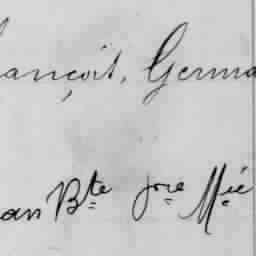 ançois, Germa
an Bte Jre Mié